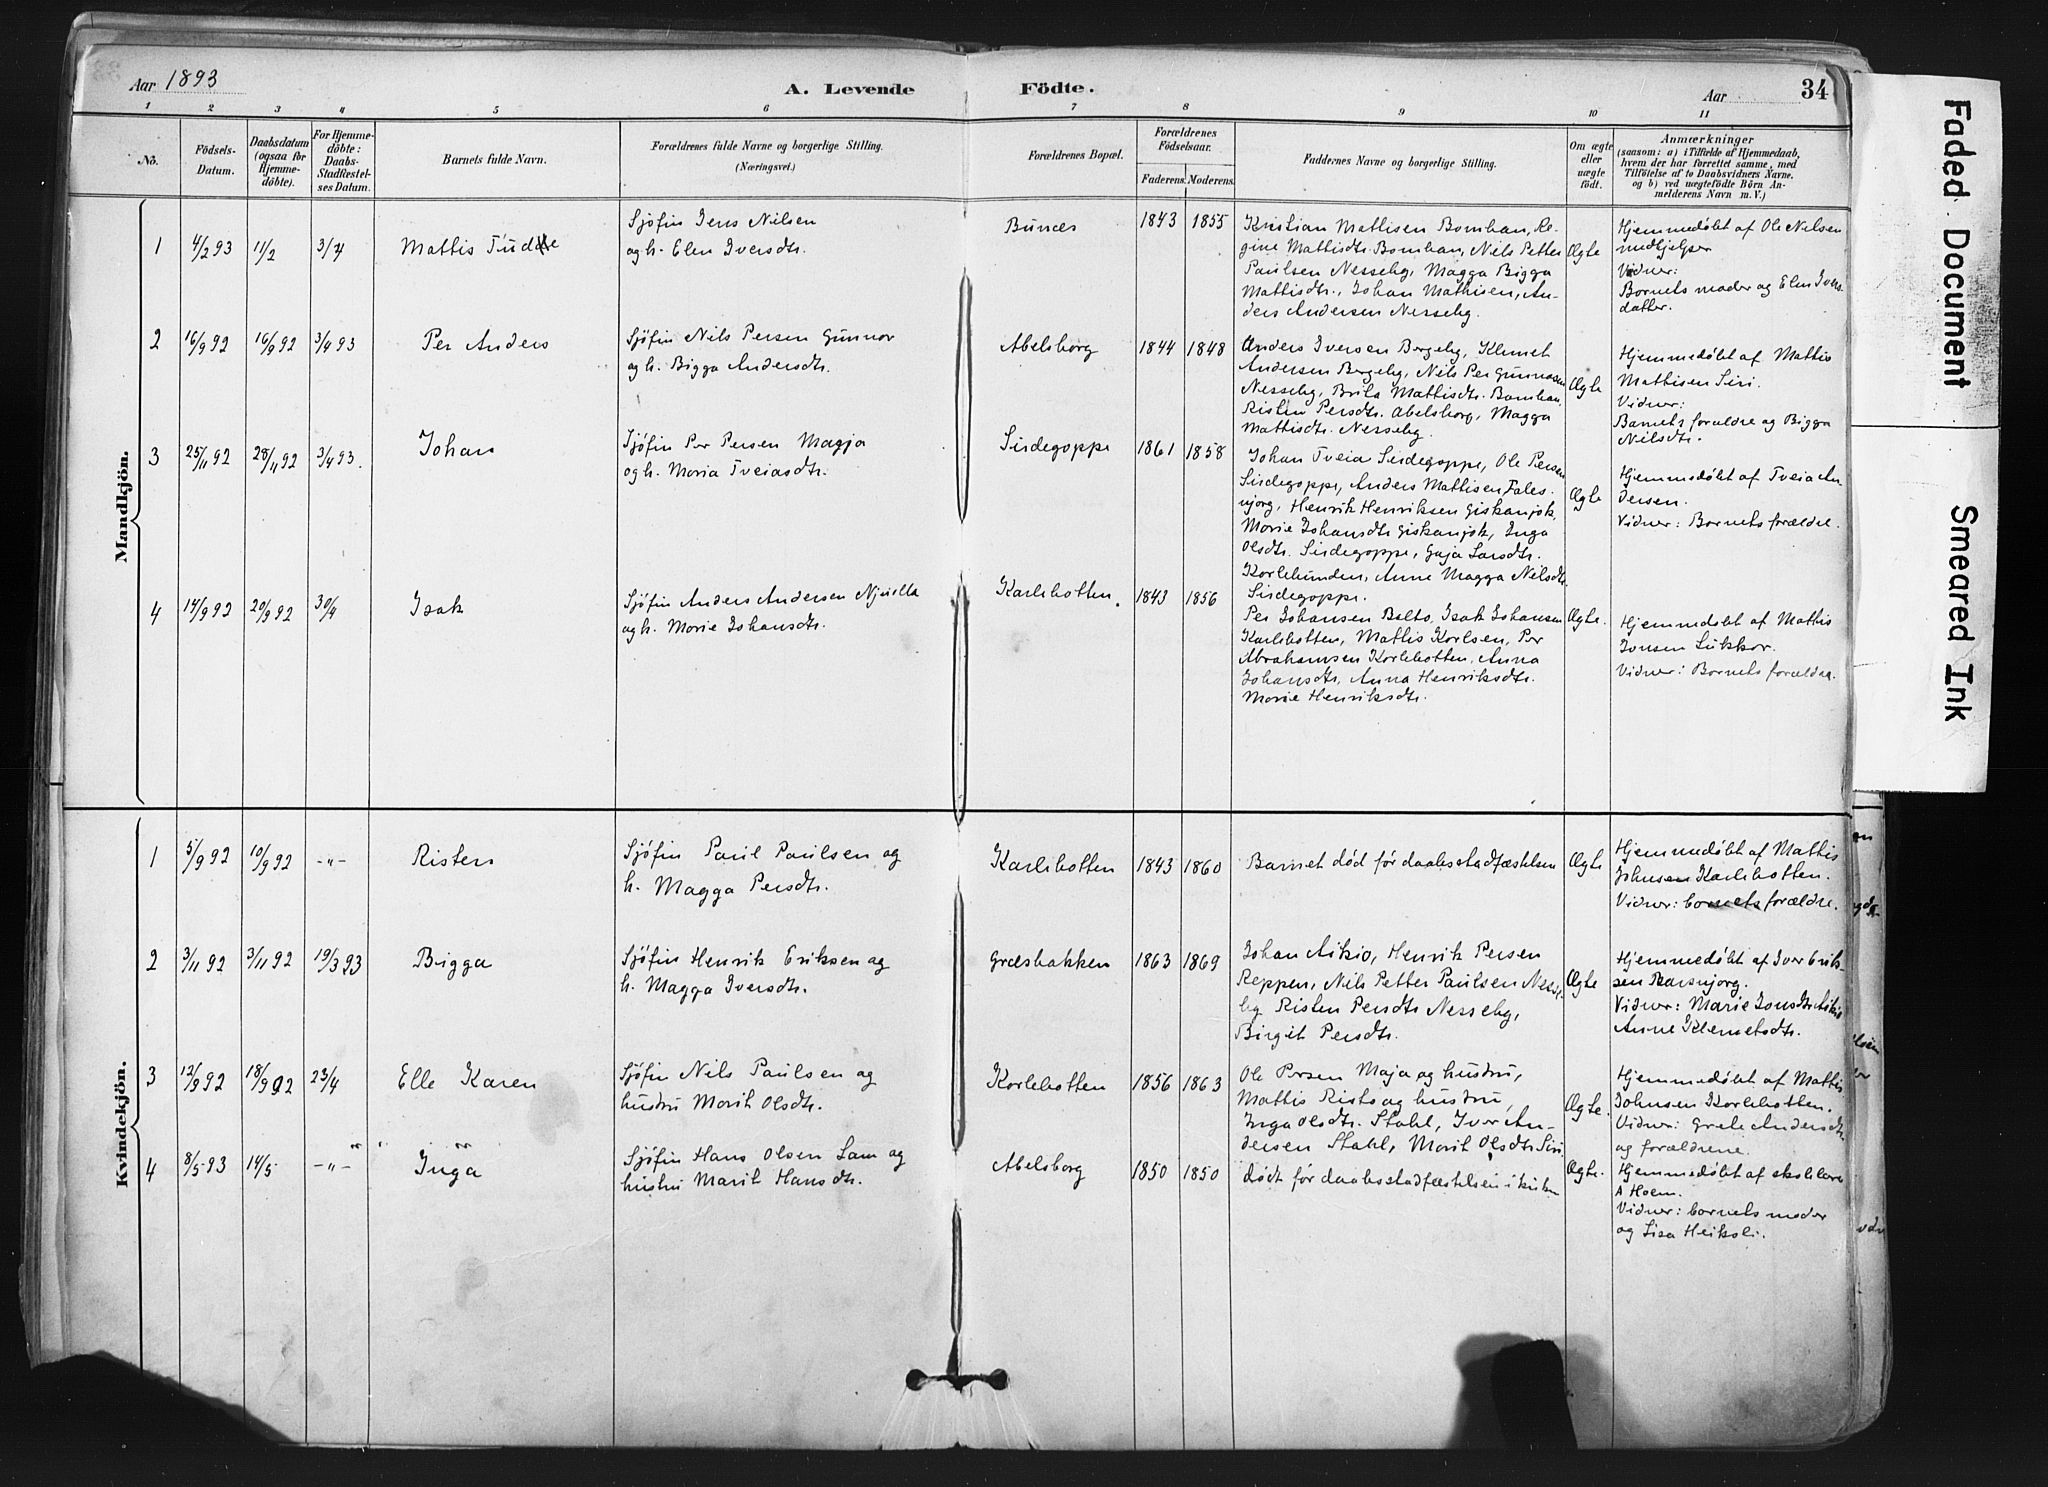 Aar 1893
A. Levende Födte.
Aar
34
1 2 3 4 5 6 7 8 9 10 11
No.
Födsels-Datum.
Daabsdatum (ogsaa for Hjemme-döbte).
For Hjemme-döbte: Daabs-Stadfæstel-ses Datum.
Barnets fulde Navn.
Forældrenes fulde Navne og borgerlige Stilling.
(Næringsvei.)
Forældrenes Bopæl.
Forældrenes Födselsaar.
Faderens. Moderens.
Faddernes Navne og borgerlige Stilling.
Om ægte eller uægte födt.
Anmærkninger
(saasom: a) i Tilfælde af Hjemmedaab,
hvem der har forrettet samme, med
Tilföielse af to Daabsvidners Navne,
og b) ved uægtefödte Börn An-
melderens Navn m. V.)
Mandkjön.
1 4/2 93 11/2 3/4 Mattis
Sjöfin Jens Nilsen
og h. Elen Iversdtr.
Bunes 1843 1855
Kristian Mathisen Bomban, Re-
gine Mattisdtr. Bomban, Nils Petter
Paulsen Nesseby, Magga Bigga
Mattisdtr., Johan Mathisen, An-
ders Andersen Nesseby.
Ægte
Hjemmedöbt af Ole Nilsen
medhjelper
Vidner:
Barnets moder og Elen Ivers-
datter.
2 16/9 92 16/9 92 3/4 93 Per Anders
Sjöfin Nils Persen Gunnor
og h. Bigga Andersdtr.
Abelsborg 1844 1848
Anders Iversen Bergeby, Klemet
Andersen Bergeby, Nils Per Gunnasen
Nesseby, Brita Mattisdtr. Bomban,
Risten Persdtr. Abelsborg, Magga
Mattisdtr. Nesseby.
Ægte
Hjemmedöbt af Mattis
Mathisen Siri.
Vidner:
Barnets forældre og Bigga
Nilsdtr.
3 25/11 92 28/11 92 3/4 93. Johan
Sjöfin Per Persen Magja
og h. Maria Tveiasdtr.
Sirdegoppe 1861 1858
Johan Tveia Sirdegoppe, Ole Persen
Sirdegoppe, Anders Mathisen Fales-
njorg, Henrik Henriksen Giskanjok,
Marie Johansdtr Giskanjok, Inga
Olsdtr. Sirdegoppe, Gaja Larsdtr.
Karlebunden, Anne Magga Nilsdtr.
Sirdegoppe.
Ægte
Hjemmedöbt af Tveia An-
dersen.
Vidner: Barnets forældre.
4 14/9 92 20/9 92 30/4 Isak
Sjöfin Anders Andersen Njuella
og h. Marie Johansdtr.
Karlebotten. 1843 1856
Per Johansen Balto, Isak Johansen
Karlebotten, Mattis Karlsen, Per
Abrahamsen Karlebotten, Anna
Johansdtr, Anna Henriksdtr.
Marie Henriksdtr.
Ægte.
Hjemmedöbt af Mattis
Jonsen Lukkar.
Vidner: Barnets forældre.
Kvindekjön.
1 5/9 92 10/9 92 -"- Risten
Sjöfin Paul Paulsen og
h. Magga Persdtr.
Karlebotten 1843 1860
Barnet död för daabsstadfæstelsen
Ægte
Hjemmedöbt af Mattis
Johnsen Karlebotten.
Vidner: barnets forældre.
2 3/11 92 3/11 92 19/3 93 Bigga
Sjöfin Henrik Eriksen og
h. Magga Iversdtr.
Græsbakken 1863 1869
Johan Aikio, Henrik Persen
Reppen, Nils Petter Paulsen Nesse-
by Risten Persdtr Nesseby,
Birgit Persdtr.
Ægte
Hjemmedöbt af Iver Erik-
sen Karsnjorg.
Vidner: Marie Jonsdtr Aikio
Anne Klemetsdtr.
3 12/9 92 18/9 92 23/4 Elle Karen
Sjöfin Nils Paulsen og
hustru Marit Olsdtr.
Karlebotten 1856 1863
Ole Persen Maja og hustru,
Mattis Risto og hustru,
Inga Olsdtr. Stahl, Iver An-
dersen Stahl, Marit Olsdtr Siri
Ægte.
Hjemmedöbt af Mattis
Johnsen Karlebotten.
Vidner: Grete Andersdtr
og forældrene.
4 8/5 93 14/5 -"- Inga
Sjöfin Hans Olsen Lam og
hustru Marit Hansdtr.
Abelsborg 1850 1850
dödt för daabsstadfæstelsen i kirken
Ægte.
Hjemmedöbt af skolelærer
A Hoem.
Vidner: barnets moder
og Lisa Heikoli.
Faded Document Smeared Ink